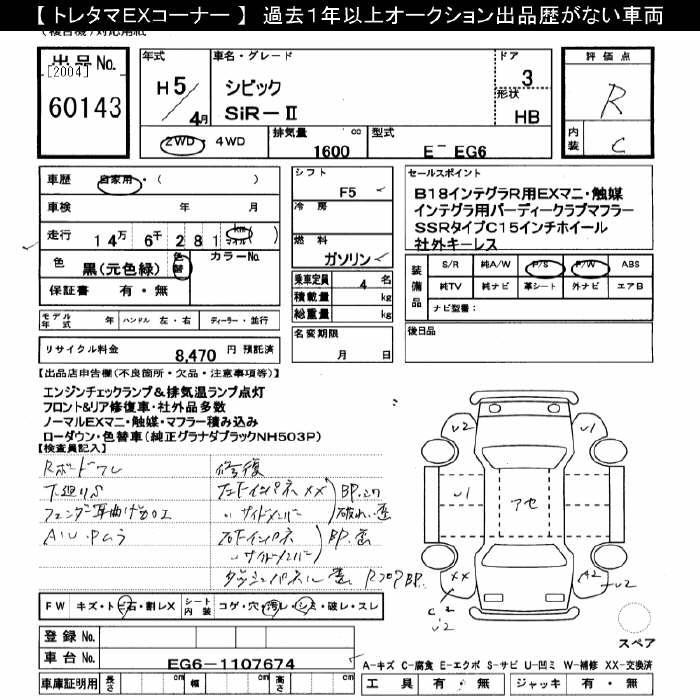 【 トレタマEXコーナー 】 過去1年以上オークション出品歴がない車両
出品No.
[2004]
60143
年式
H5/4月
車名・グレード
シビック
SiR-Ⅱ
ドア
3
形状
HB
評価点
R
内装
C
2WD ・ 4WD
排気量 cc
1600
型式
E- EG6
車歴 自家用・( )
車検 年 月
走行 14万 6千 281 km マイル
色 黒(元色緑) 色替 カラーNo.
保証書 有・無
シフト
F5
冷房
燃料
ガソリン
乗車定員 4 名
積載量 kg
総重量 kg
セールスポイント
B18インテグラR用EXマニ・触媒
インテグラ用バーディークラブマフラー
SSRタイプC15インチホイール
社外キーレス
装備品
S/R 純A/W P/S P/W ABS
純TV 純ナビ 革シート 外ナビ エアB
ナビ型番：
モデル年式 年 ハンドル 左・右 ディーラー・並行
名変期限
月 日
後日品
リサイクル料金 8,470 円 預託済
【出品店申告欄(不良箇所・欠品・注意事項等)】
エンジンチェックランプ&排気温ランプ点灯
フロント&リア修復車・社外品多数
ノーマルEXマニ・触媒・マフラー積み込み
ローダウン・色替車(純正グラナダブラックNH503P)
【検査員記入】
修復
下廻りS
フェンダー耳曲げ加工
サイドメンバー
サイドメンバー
アセ
U2
U1
U1
XX
A2
U2
C2
U2
FW キズ・トビ石・割レX シート内装 コゲ・穴・汚レ・シミ・破レ・スレ
スペア
登録No.
車台No. EG6-1107674
A-キズ C-腐食 E-エクボ S-サビ U-凹ミ W-補修 XX-交換済
車庫証明用 長さ 幅 高さ
工具 有・無 ジャッキ 有・無